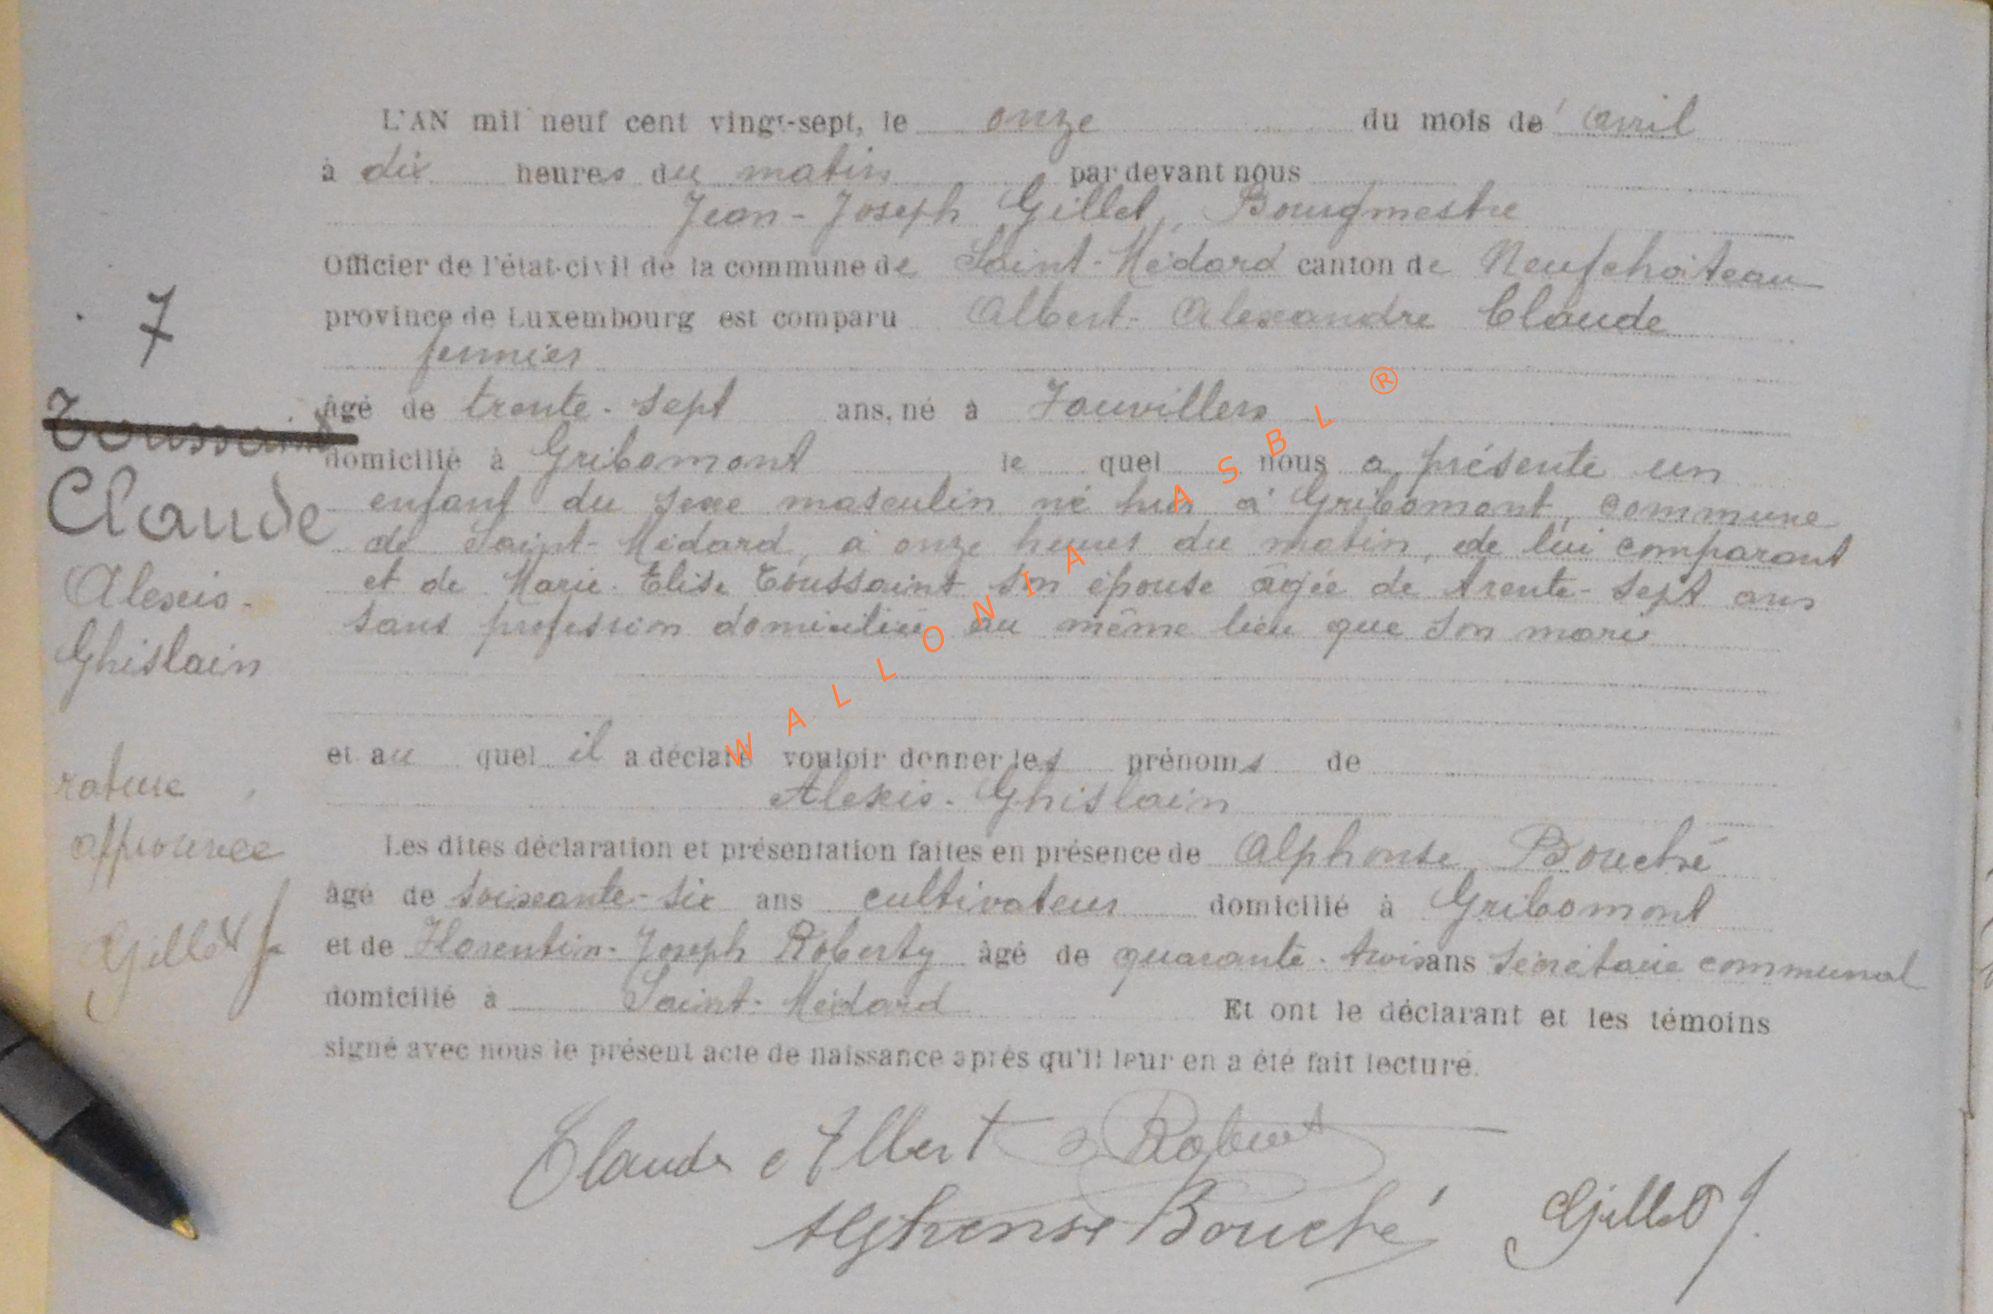 L'AN mil neuf cent vingt-sept, le onze du mois de avril
à dix heures du matin par devant nous
Jean-Joseph Gillet, Bourgmestre
Officier de l'état-civil de la commune de Saint-Médard canton de Neufchâteau
province de Luxembourg est comparu Albert-Alexandre Claude
fermier
âgé de trente-sept ans, né à Jouvillers
domicilié à Gribomont le quel nous a présenté un
enfant du sexe masculin né hier à Gribomont, commune
de Saint-Médard, à onze heures du matin, de lui comparant
et de Marie-Elise Toussaint son épouse âgée de trente-sept ans
sans profession domiciliée au même lieu que son mari
et au quel il a déclaré vouloir donner les prénoms de
Alexis-Ghislain
Les dites déclaration et présentation faites en présence de Alphonse Bouché
âgé de soixante-six ans cultivateur domicilié à Gribomont
et de Florentin-Joseph Roberty âgé de quarante-trois ans secrétaire communal
domicilié à Saint-Médard Et ont le déclarant et les témoins
signé avec nous le présent acte de naissance après qu'il leur en a été fait lecture.
Claude Albert
Alphonse Bouché
Gillet J
7
Toussaint
Claude
Alexis-
Ghislain
rature
approuvée
Gillet J
WALLONIA ASBL ®